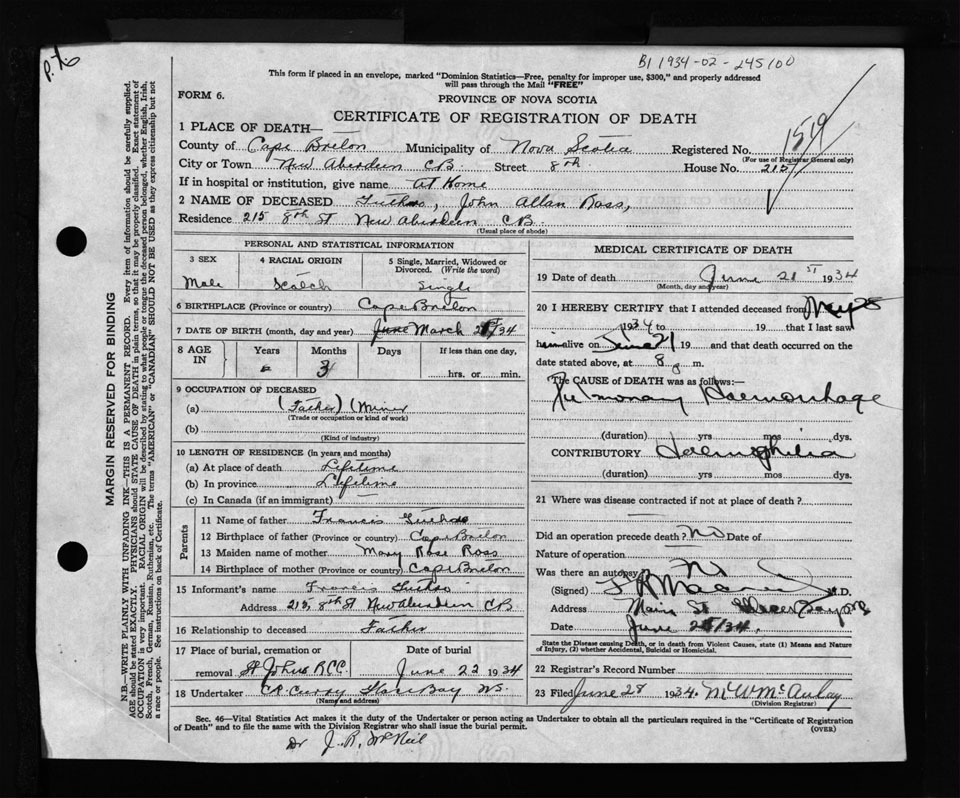 P. 76
B1 1934-02-245100
This form if placed in an envelope, marked "Dominion Statistics—Free, penalty for improper use, $300," and properly addressed
will pass through the Mail "FREE"
FORM 6.
PROVINCE OF NOVA SCOTIA
CERTIFICATE OF REGISTRATION OF DEATH
1519
1 PLACE OF DEATH—
County of Cape Breton Municipality of Nova Scotia Registered No.
(For use of Registrar General only)
City or Town New Aberdeen CB Street 8th House No. 215
If in hospital or institution, give name at Home
2 NAME OF DECEASED John Allan Ross,
Residence 215 8th St New Aberdeen CB.
(Usual place of abode)
PERSONAL AND STATISTICAL INFORMATION
3 SEX
4 RACIAL ORIGIN
5 Single, Married, Widowed or Divorced. (Write the word)
Male Scotch Single
6 BIRTHPLACE (Province or country) Cape Breton
7 DATE OF BIRTH (month, day and year) June March /34
8 AGE IN
Years Months Days If less than one day,
3
hrs. or min.
9 OCCUPATION OF DECEASED
(a) (Father) (Miner
(Trade or occupation or kind of work)
(b)
(Kind of industry)
10 LENGTH OF RESIDENCE (in years and months)
(a) At place of death Lifetime
(b) In province Lifetime
(c) In Canada (if an immigrant)
Parents
11 Name of father Francis
12 Birthplace of father (Province or country) Cape Breton
13 Maiden name of mother Mary Rose Ross
14 Birthplace of mother (Province or country) Cape Breton
15 Informant's name Francis
Address 215 8th St New Aberdeen CB
16 Relationship to deceased Father
17 Place of burial, cremation or removal Date of burial
St Johns R.C.C. June 22 1934
18 Undertaker Curry Glace Bay NS.
(Name and address)
MEDICAL CERTIFICATE OF DEATH
19 Date of death June 21st 1934
(Month, day and year)
20 I HEREBY CERTIFY that I attended deceased from May 28
1934 to 19 that I last saw
him alive on June 21 19 and that death occurred on the
date stated above, at 8 m.
The CAUSE OF DEATH was as follows:—
Pulmonary Haemorrhage
(duration) yrs mos dys.
CONTRIBUTORY Haemophilia
(duration) yrs mos dys.
21 Where was disease contracted if not at place of death?
Did an operation precede death? No Date of
Nature of operation
Was there an autopsy No
(Signed) M.D.
Address Main St Glace Bay
Date June /34.
State the Disease causing Death, or in death from Violent Causes, state (1) Means and Nature
of Injury, (2) whether Accidental, Suicidal or Homicidal.
22 Registrar's Record Number
23 Filed June 28 1934. McAulay
(Division Registrar)
Sec. 46—Vital Statistics Act makes it the duty of the Undertaker or person acting as Undertaker to obtain all the particulars required in the "Certificate of Registration
of Death" and to file the same with the Division Registrar who shall issue the burial permit. (OVER)
Dr J. R. McNeil
MARGIN RESERVED FOR BINDING
N.B.—WRITE PLAINLY WITH UNFADING INK—THIS IS A PERMANENT RECORD. Every item of information should be carefully supplied.
AGE should be stated EXACTLY. PHYSICIANS should STATE CAUSE OF DEATH in plain terms, so that it may be properly classified. Exact statement of
OCCUPATION is very important. RACIAL ORIGIN will be described by stating to what people or tongue the deceased person belonged, whether English, Irish,
Scotch, French, German, Russian, Ruthenian, etc. The terms "AMERICAN" or "CANADIAN" SHOULD NOT BE USED as they express citizenship but not
a race or people. See instructions on back of Certificate.